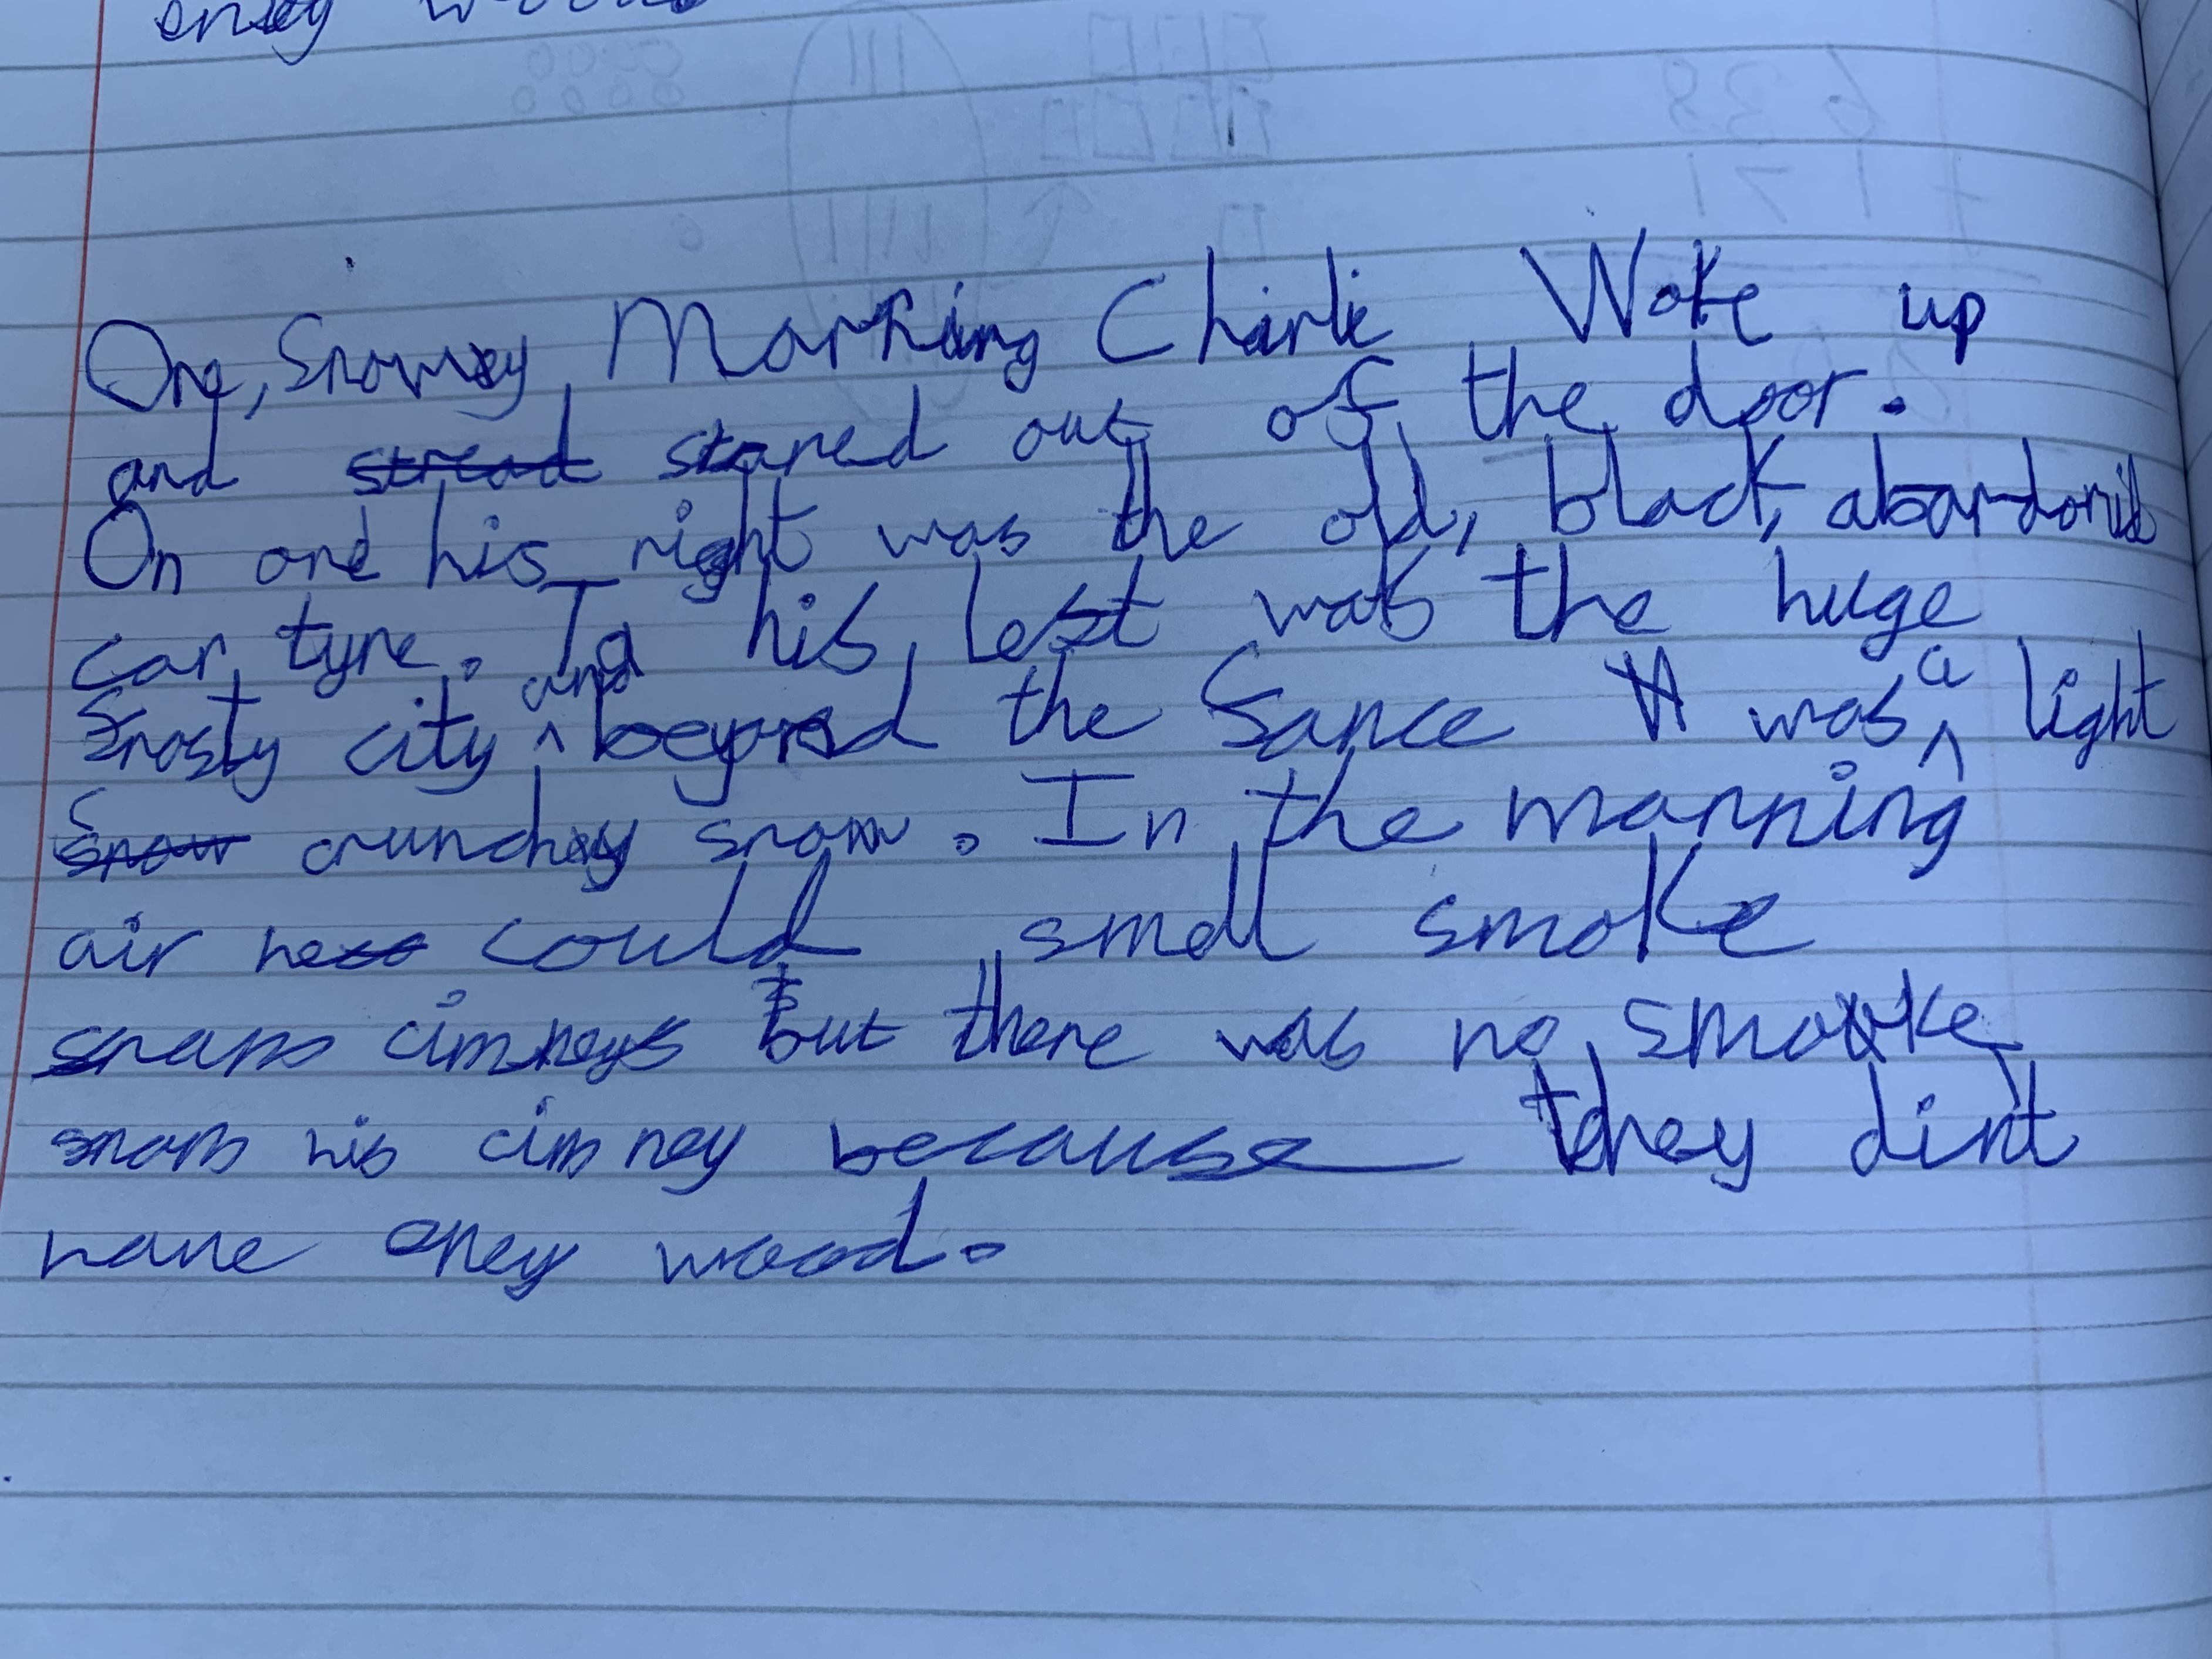 eney wood
One, Snowey Morning Charlie Woke up
and stread stared out of the door.
On one his right was the old, black, abandonid
car tyre. To his left was the huge
frosty city and beyond the fance It was a light
snow crunchey snow. In the morning
air he could smell smoke
from cimneys but there was no smoke
from his cimney because they dint
have eney wood.